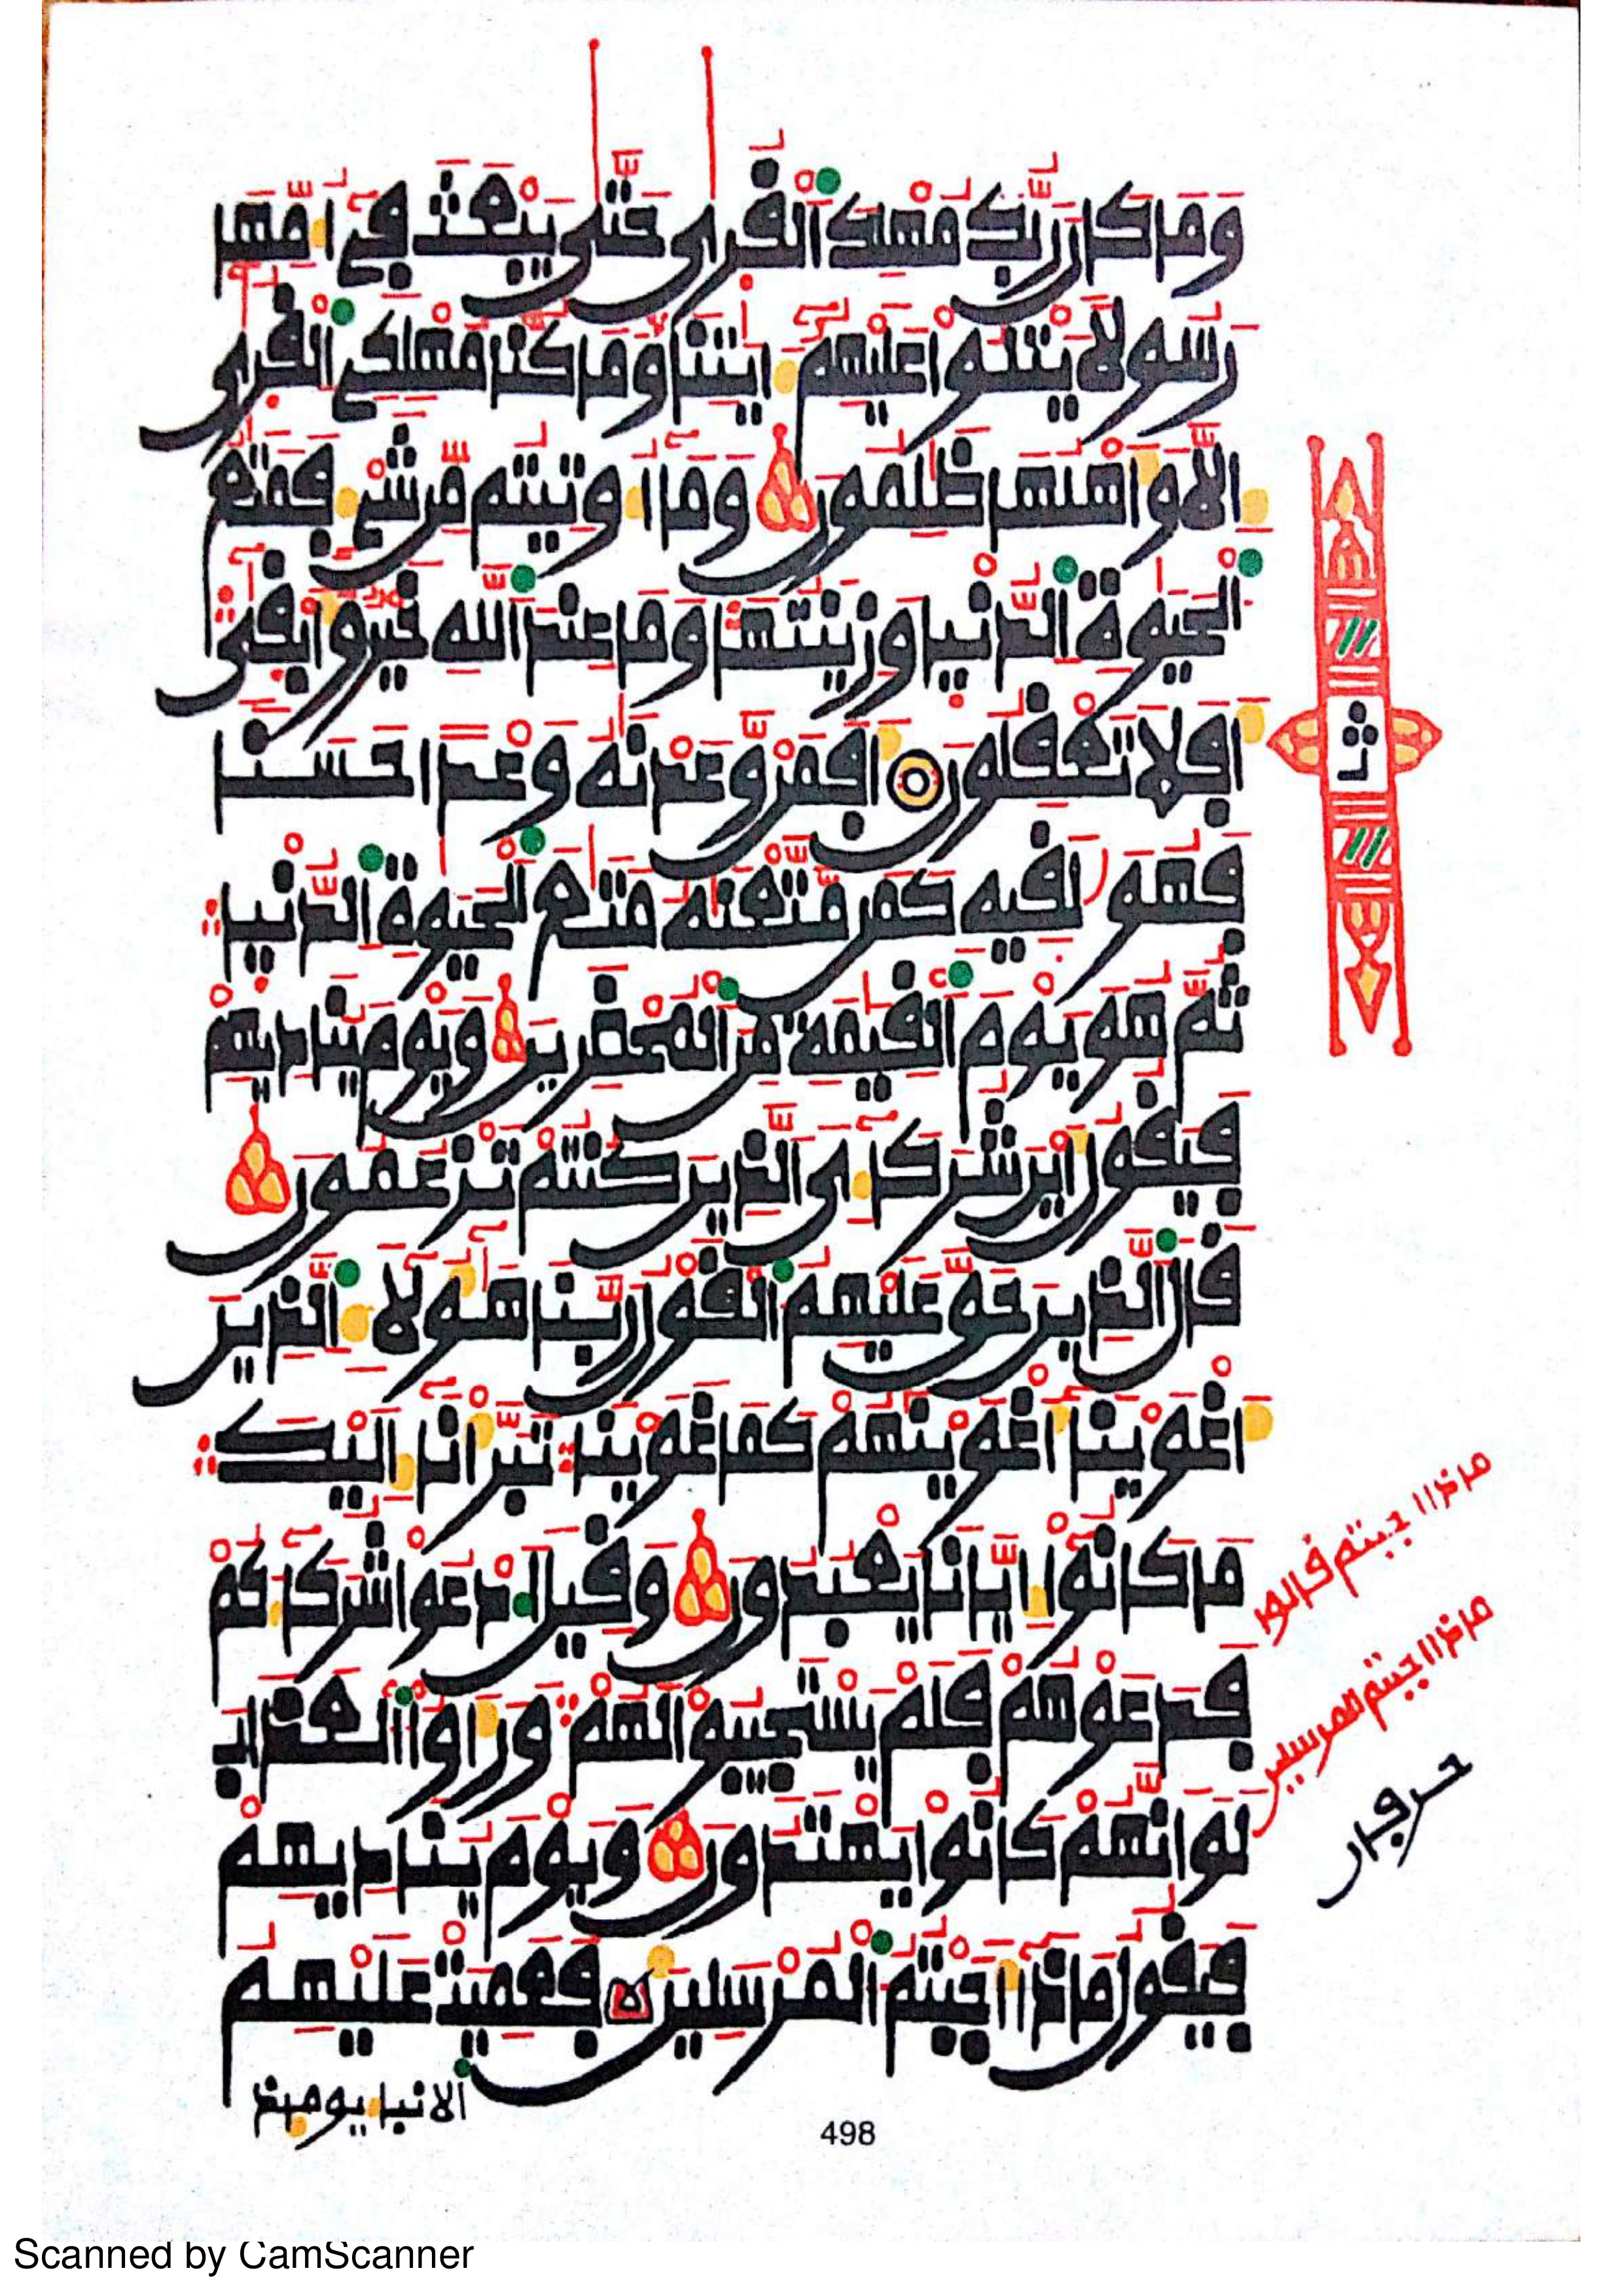 وَمَا كَانَ رَبُّكَ مُهْلِكَ ٱلْقُرَىٰ حَتَّىٰ يَبْعَثَ فِےٓ أُمِّهَا
رَسُولاٗ يَتْلُواْ عَلَيْهِمُۥٓ ءَايَٰتِنَا وَمَا كُنَّا مُهْلِكِے ٱلْقُرَىٰٓ
إِلَّا وَأَهْلُهَا ظَٰلِمُونَ وَمَآ أُوتِيتُم مِّن شَےْءٖ فَمَتَٰعُ
ٱلْحَيَوٰةِ ٱلدُّنْيَا وَزِينَتُهَا وَمَا عِندَ ٱللَّهِ خَيْرٞ وَأَبْقَىٰٓ
أَفَلَا تَعْقِلُونَ أَفَمَنْ وَعَدْنَٰهُ وَعْداً حَسَناٗ
فَهُوَ لَٰقِيهِ كَمَن مَّتَّعْنَٰهُ مَتَٰعَ ٱلْحَيَوٰةِ ٱلدُّنْيَا
ثُمَّ هُوَ يَوْمَ ٱلْقِيَٰمَةِ مِنَ ٱلْمُحْضَرِينَ وَيَوْمَ يُنَادِيهِمْ
فَيَقُولُ أَيْنَ شُرَكَآءِيَ ٱلذِينَ كُنتُمْ تَزْعُمُونَ
قَالَ ٱلذِينَ حَقَّ عَلَيْهِمُ ٱلْقَوْلُ رَبَّنَا هَٰٓؤُلَآءِ ٱلذِينَ
أَغْوَيْنَآ أَغْوَيْنَٰهُمْ كَمَا غَوَيْنَا تَبَرَّأْنَآ إِلَيْكَ
مَا كَانُوٓاْ إِيَّانَا يَعْبُدُونَ وَقِيلَ ٱدْعُواْ شُرَكَآءَكُمْ
فَدَعَوْهُمْ فَلَمْ يَسْتَجِيبُواْ لَهُمْ وَرَأَوُاْ ٱلْعَذَابَ
لَوَ اَنَّهُمْ كَانُواْ يَهْتَدُونَ وَيَوْمَ يُنَادِيهِمْ
فَيَقُولُ مَاذَآ أَجَبْتُمُ ٱلْمُرْسَلِينَ فَعَمِيَتْ عَلَيْهِمُ
ٱلَانۢبَآءُ يَوْمَئِذٖ
498
Scanned by CamScanner